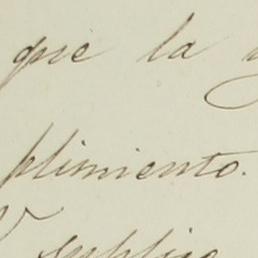 que la
plimiento.
suplico